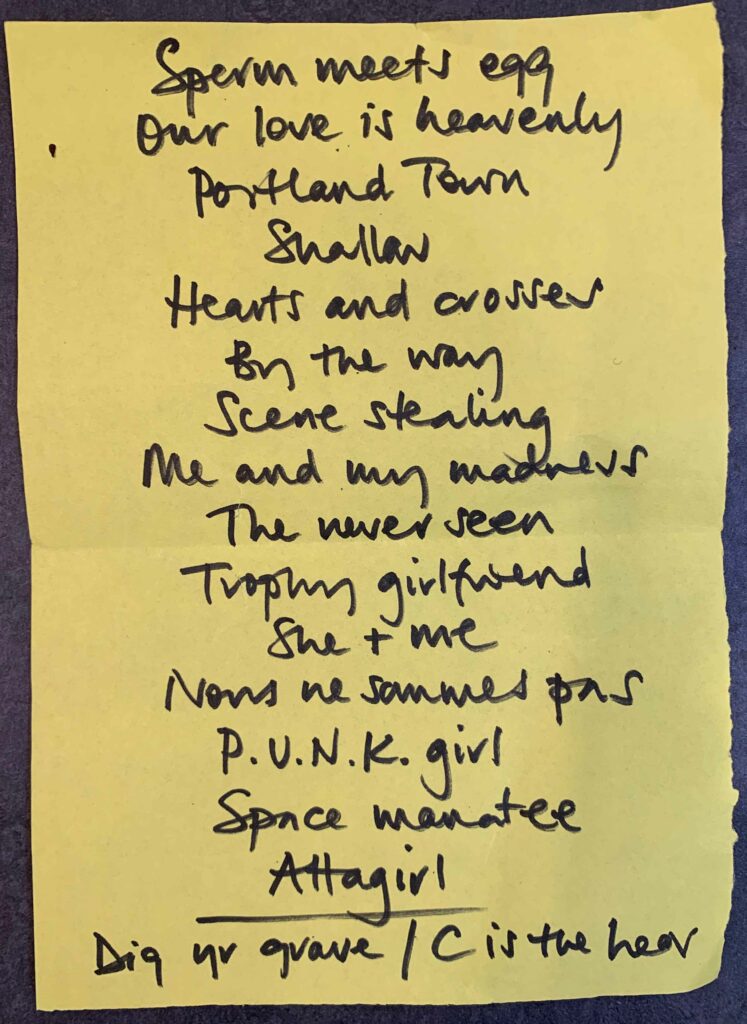 Sperm meets egg
Our love is heavenly
Portland Town
Shallow
Hearts and crosses
By the way
Scene stealing
Me and my madness
The never seen
Trophy girlfriend
She + me
Nous ne sommes pas
P.U.N.K. girl
Space manatee
Attagirl
Dig yr grave / C is the heav